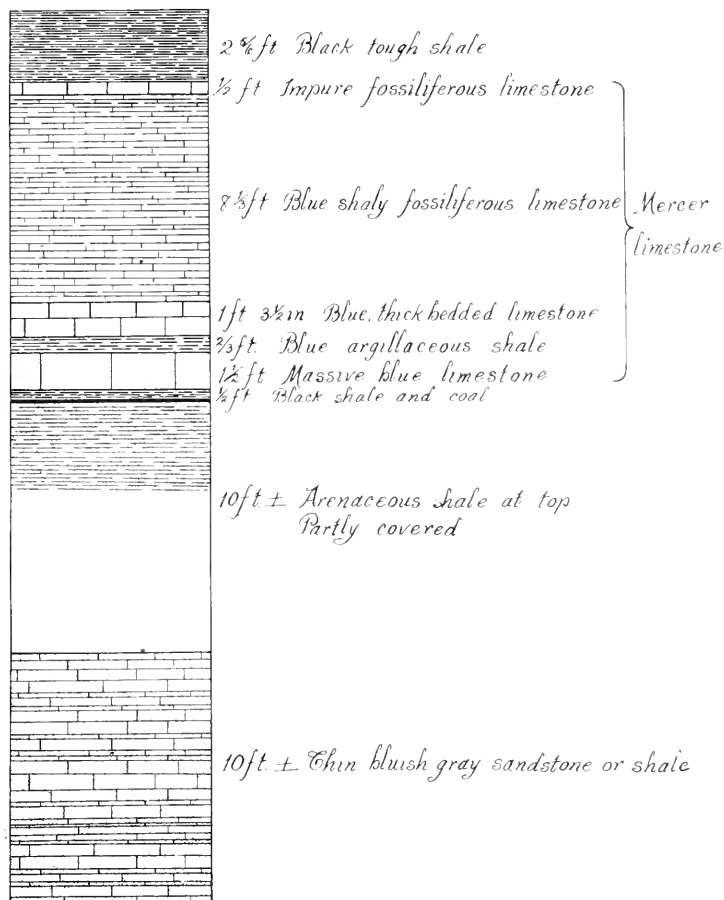 2 5/6 ft Black tough shale
1/2 ft Impure fossiliferous limestone
8 1/3 ft Blue shaly fossiliferous limestone
Mercer
limestone
1 ft 3 1/2 in Blue, thick bedded limestone
2/3 ft. Blue argillaceous shale
1 1/2 ft Massive blue limestone
1/2 ft Black shale and coal
10 ft. ± Arenaceous shale at top
Partly covered
10 ft. ± Thin bluish gray sandstone or shale